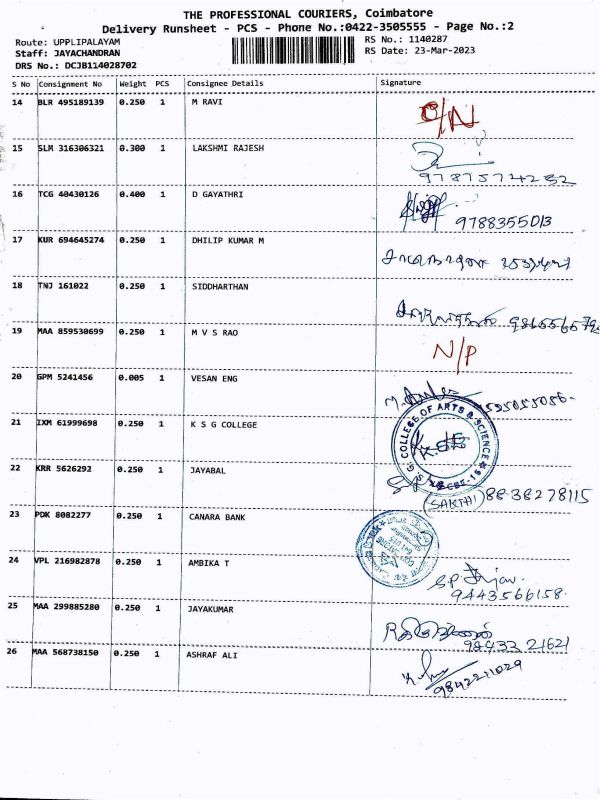 THE PROFESSIONAL COURIERS, Coimbatore
Delivery Runsheet - PCS - Phone No.:0422-3505555 - Page No.:2
Route: UPPLIPALAYAM RS No.: 1140287
Staff: JAYACHANDRAN RS Date: 23-Mar-2023
DRS No.: DCJB114028702
S No Consignment No Weight PCS Consignee Details Signature
14 BLR 495189139 0.250 1 M RAVI O/N
15 SLM 316306321 0.300 1 LAKSHMI RAJESH
9787574232
16 TCG 40430126 0.400 1 D GAYATHRI
17 KUR 694645274 0.250 1 DHILIP KUMAR M
18 TNJ 161022 0.250 1 SIDDHARTHAN
19 MAA 859530699 0.250 1 M V S RAO N/P
20 GPM 5241456 0.005 1 VESAN ENG
21 IXM 61999698 0.250 1 K S G COLLEGE
G. COLLEGE OF ARTS & SCIENCE
22 KRR 5626292 0.250 1 JAYABAL
(SAKTHI) 8838278115
23 PDK 8082277 0.250 1 CANARA BANK
24 VPL 216982878 0.250 1 AMBIKA T
9443566158
25 MAA 299885280 0.250 1 JAYAKUMAR
98433 21621
26 MAA 568738150 0.250 1 ASHRAF ALI
9842211029